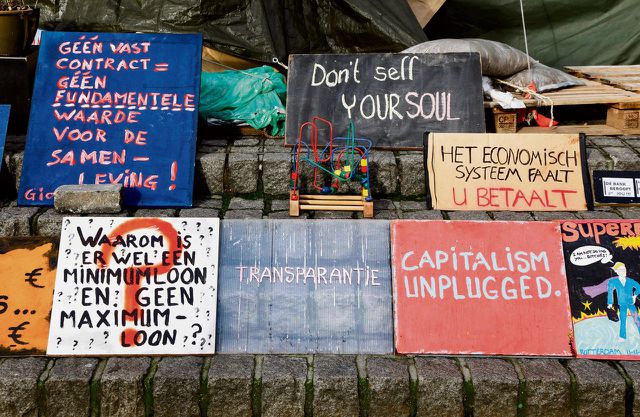 GÉÉN VAST
CONTRACT =
GÉÉN
FUNDAMENTELE
WAARDE
VOOR DE
SAMEN-
LEVING!
Gio
Don't sell
YOUR SOUL
HET ECONOMISCH
SYSTEEM FAALT
U BETAALT
DE BANK
BEROOFT
€
S... €
WAAROM IS
ER WEL EEN
MINIMUMLOON
EN GEEN
MAXIMUM-
LOON ?
TRANSPARANTIE
CAPITALISM
UNPLUGGED.
SUPER
ROTTERDAM